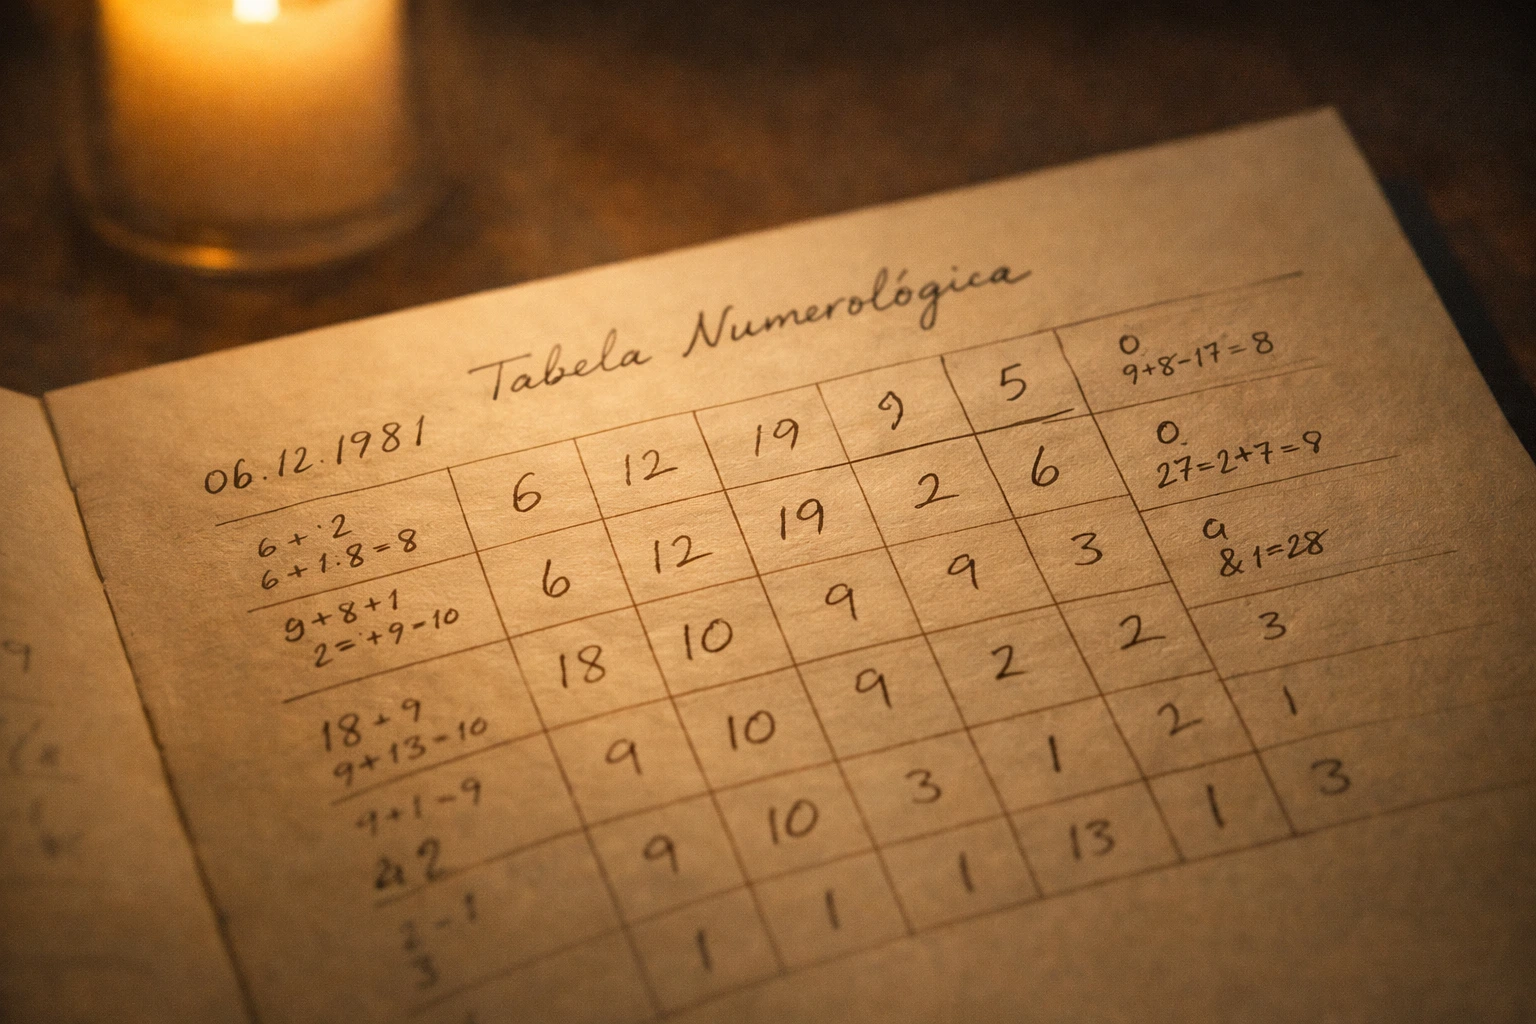 Tabela Numerológica
06.12.1981
6 + 2
6 + 1.8 = 8
9 + 8 + 1
2 = + 9 - 10
18 + 9
9 + 13 - 10
9 + 1 - 9
2
2 - 1
3
6 12 19 9 5
6 12 19 2 6
18 10 9 9 3
9 10 9 2 2
9 10 3 1 2 1
1 1 1 13 1 3
o
9+8-17 = 8
o
27=2+7=8
a
& 1=28
3
9